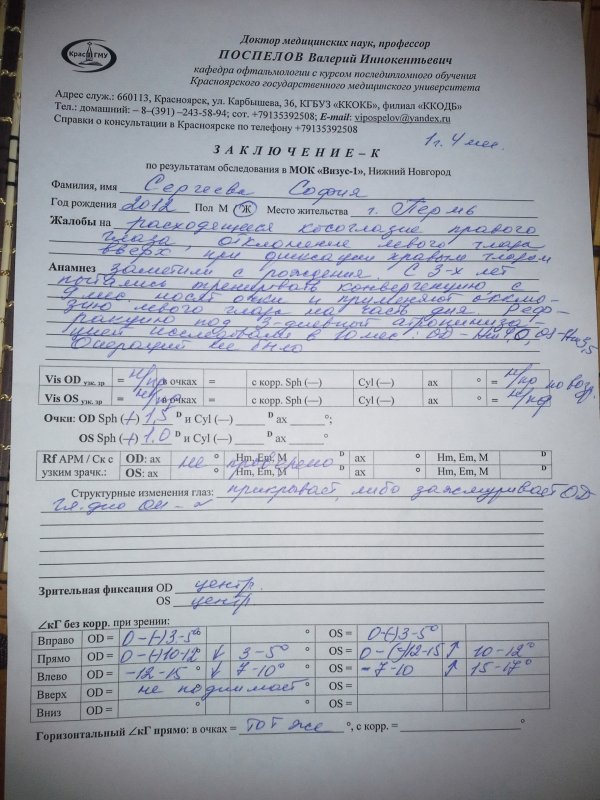 КрасГМУ
Доктор медицинских наук, профессор
ПОСПЕЛОВ Валерий Иннокентьевич
кафедра офтальмологии с курсом последипломного обучения
Красноярского государственного медицинского университета
Адрес служ.: 660113, Красноярск, ул. Карбышева, 36, КГБУЗ «ККОКБ», филиал «ККОДБ»
Тел.: домашний: – 8–(391) –243-58-94; сот. +79135392508; E-mail: vipospelov@yandex.ru
Справки о консультации в Красноярске по телефону +79135392508
1 г. 4 мес.
ЗАКЛЮЧЕНИЕ–К
по результатам обследования в МОК «Визус-1», Нижний Новгород
Фамилия, имя Сергеева София
Год рождения 2012 Пол М Ж Место жительства г. Пермь
Жалобы на расходящееся косоглазие правого
глаза, отклонение левого глаза
вверх при фиксации правым глазом
Анамнез заметили с рождения. С 3-х лет
пытались тренировать конвергенцию, с
9 мес носят очки и применяют окклю-
зию левого глаза на часть дня. Реф-
ракцию под 3-дневной атропиниза-
цией исследовали в 10 мес: OD – Hm 4,0, OS – Hm 3,5
Операций не было
Vis OD узк. зр = н/пр в очках = с корр. Sph (—) Cyl (—) ax ° = н/пр по возр.
Vis OS узк. зр = н/пр в очках = с корр. Sph (—) Cyl (—) ax ° = н/пр
Очки: OD Sph (+) 1,5 D и Cyl (—) D ax °;
OS Sph (+) 1.0 D и Cyl (—) D ax °
Rf АРМ / Ск с OD: ax не проверено ° Hm, Em, M D ax ° Hm, Em, M D
узким зрачк.: OS: ax ° Hm, Em, M D ax ° Hm, Em, M D
Структурные изменения глаз: прикрывает, либо зажмуривает OD
гл. дно ОИ –
Зрительная фиксация OD центр.
OS центр
∠кГ без корр. при зрении:
Вправо OD = 0-(-)3-5° ° OS = 0-(-)3-5°
Прямо OD = 0-(-)10-12 ↓ 3-5° OS = 0-(-)12-15 ↑ 10-12°
Влево OD = -12-15° ↓ 7-10° OS = -7-10 ↑ 15-17°
Вверх OD = не поднимает ° OS = °
Вниз OD = ° ° OS = °
Горизонтальный ∠кГ прямо: в очках = тот же °, с корр. = °